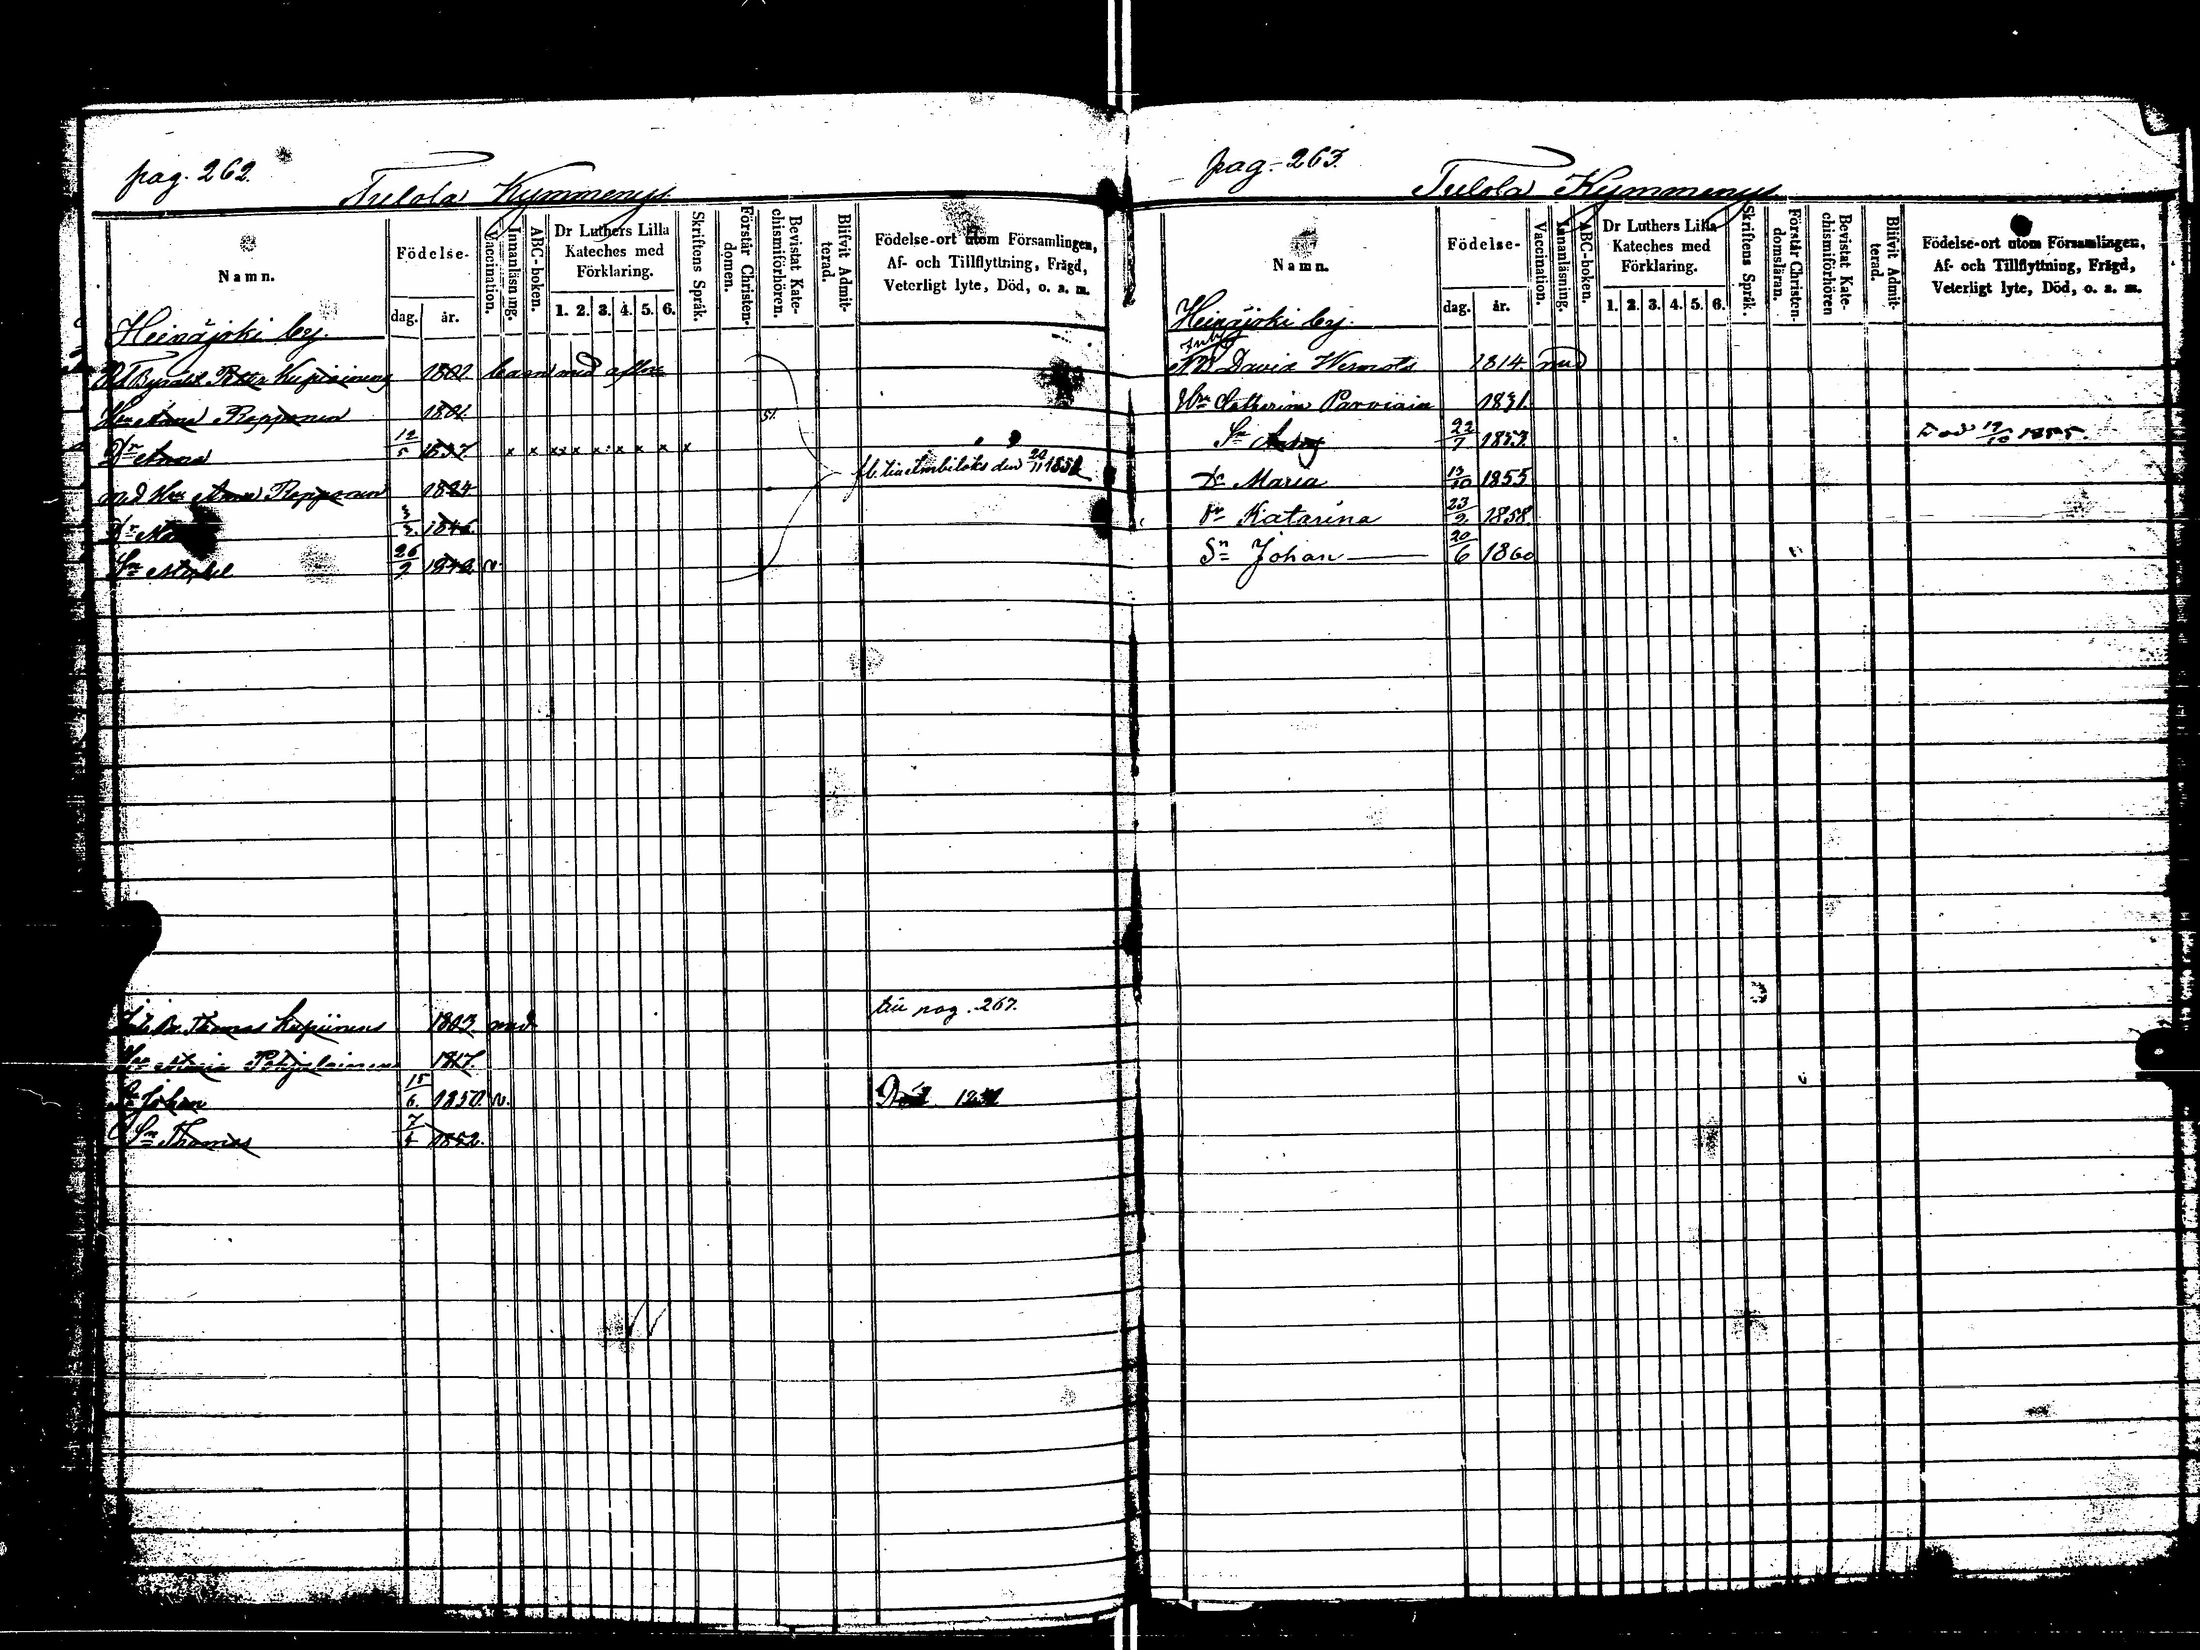 pag. 262.
Tulola Kymmenys.
Namn.
Födelse-
dag. år.
Vaccination.
Innanläsning.
ABC-boken.
Dr Luthers Lilla
Kateches med
Förklaring.
1. 2. 3. 4. 5. 6.
Skriftens Språk.
Förstår Christen-
domen.
Bevistat Kate-
chismiförhören.
Blifvit Admit-
terad.
Födelse-ort utom Församlingen,
Af- och Tillflyttning, Frägd,
Veterligt lyte, Död, o. s. m.
Heinäjoki by.
Petter 1802. barn med
Hu Anna Repponen 1801.
51.
Dr Anna 12/5 1837. x x x x x x x x x x
med Hu Anna Repponen 1824
den 20/11 1854
Dr 1846.
Sn 26/9 1842. v.
Thomas 1803. med
till pag. 267.
Hu Maria Pohjolainen 1817.
Sn Johan 15/6. 1850. v.
Död
Sn Thomas 7/4 1852.
pag. 263.
Tulola Kymmenys
Namn.
Födelse-
dag. år.
Vaccination.
Innanläsning.
ABC-boken.
Dr Luthers Lilla
Kateches med
Förklaring.
1. 2. 3. 4. 5. 6.
Skriftens Språk.
Förstår Christen-
domsläran.
Bevistat Kate-
chismiförhören
Blifvit Admit-
terad.
Födelse-ort utom Församlingen,
Af- och Tillflyttning, Frägd,
Veterligt lyte, Död, o. s. m.
Heinäjoki by.
David 1814. med
Hu Catharina Parviain 1831.
Sn 22/7 1853.
Död 1855.
Dr Maria 13/10 1855
Dr Katarina 23/9. 1858.
Sn Johan 20/6 1860